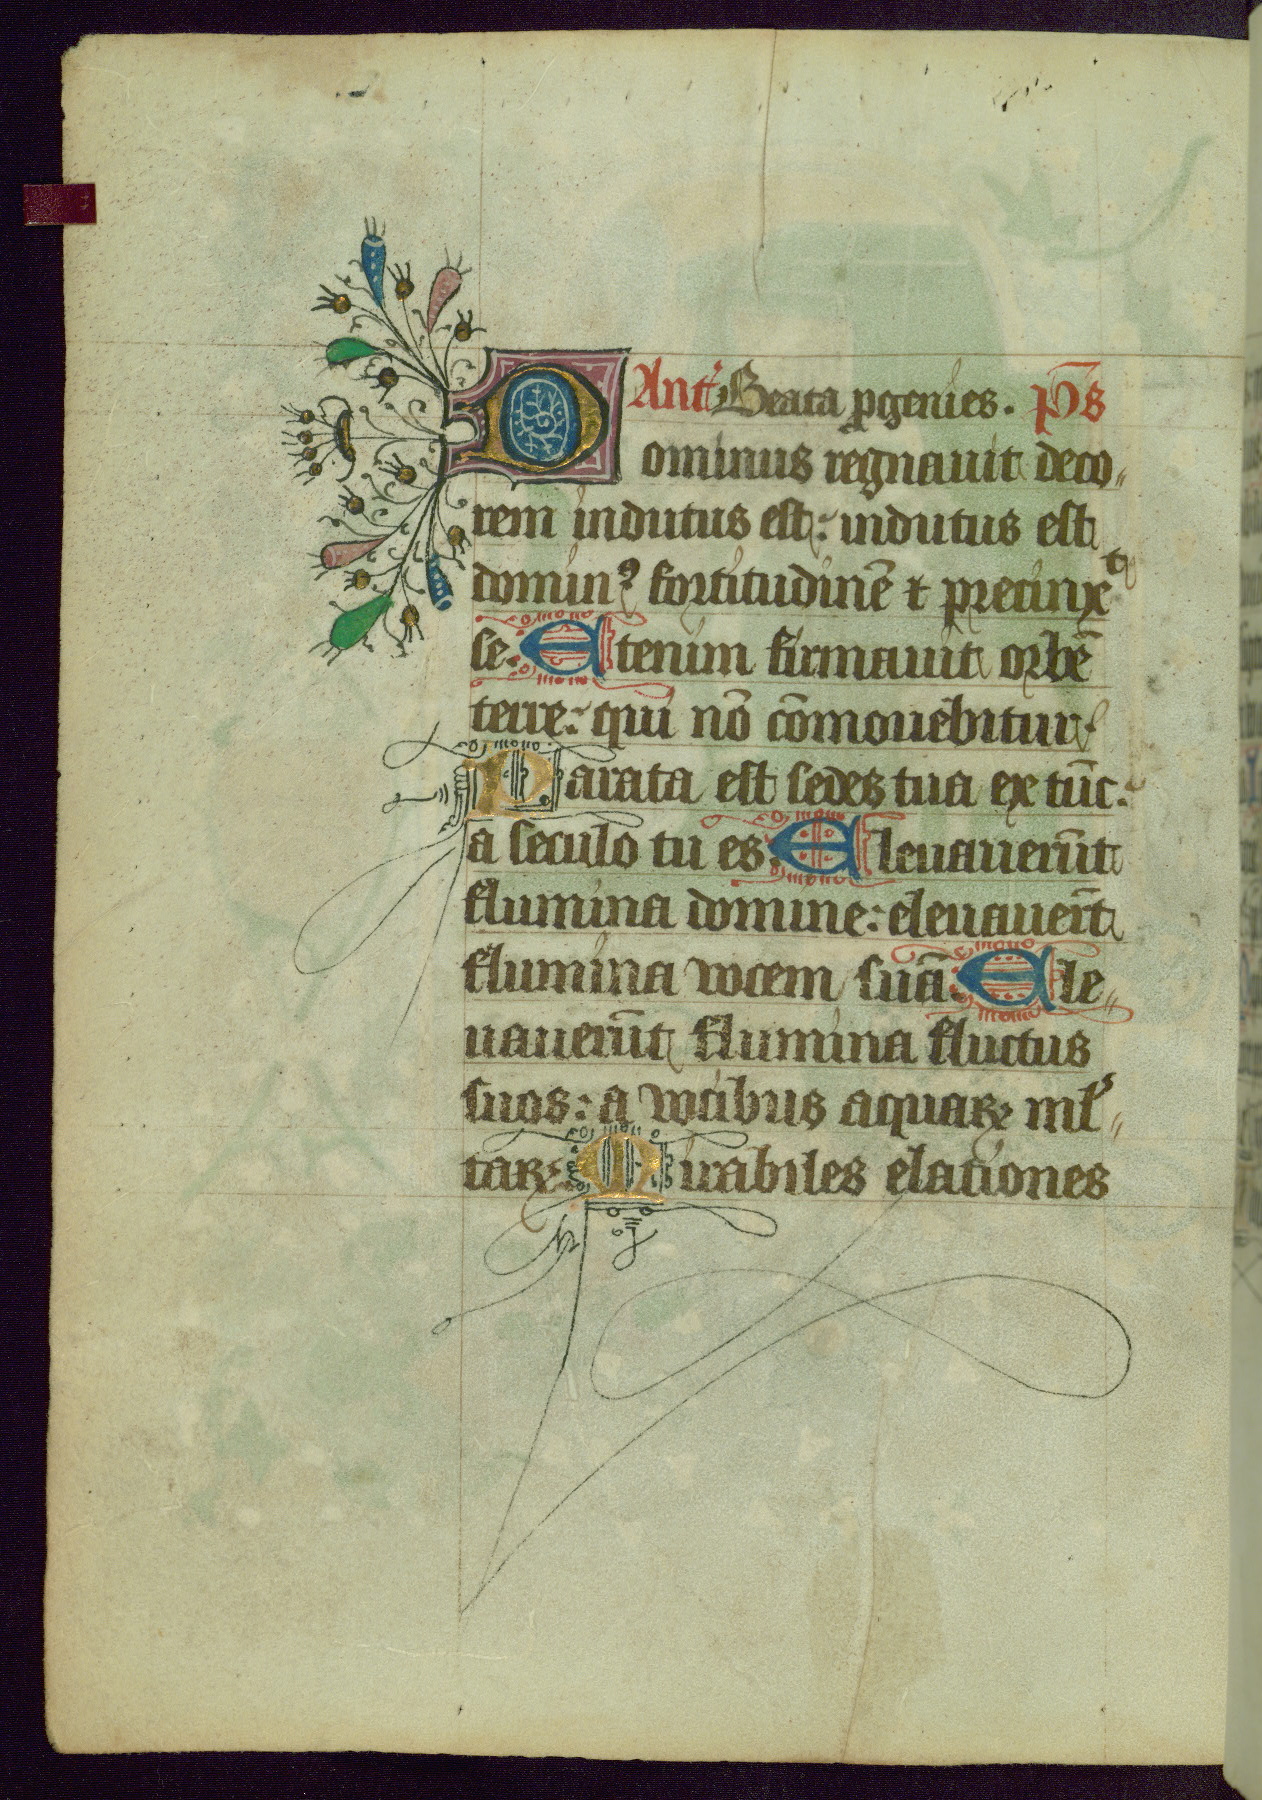 Ant᷑ Beata ꝓgenies. Ps̄
Dominus regnauit deco„
rem indutus est: indutus est
dominꝰ fortitudinē ⁊ precinxͭ
se. Etenim firmauit orbē
terre: qui nō cōmouebitur.
Parata est sedes tua ex tūc:
a seculo tu es. Eleuauerūt
flumina domine: eleuauer̄t
flumina vocem suā. Ele„
uauerūt flumina fluctus
suos: a vocibus aquaꝝ ml̓„
taꝝ. Mirabiles elationes